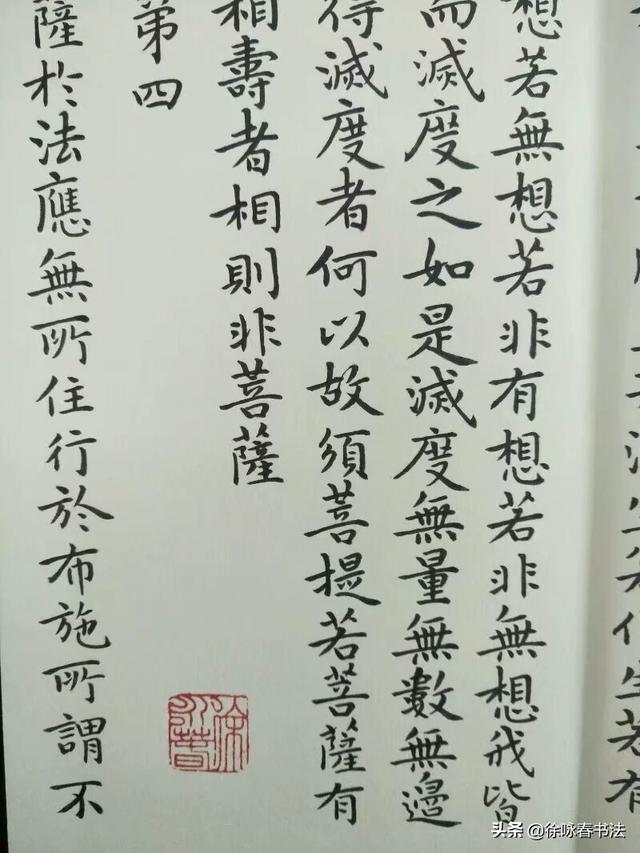 生若化生若有
想若無想若非有想若非無想我皆
而滅度之如是滅度無量無數無邊
得滅度者何以故須菩提若菩薩有
相壽者相則非菩薩
第四
薩於法應無所住行於布施所謂不
头条 @徐咏春书法